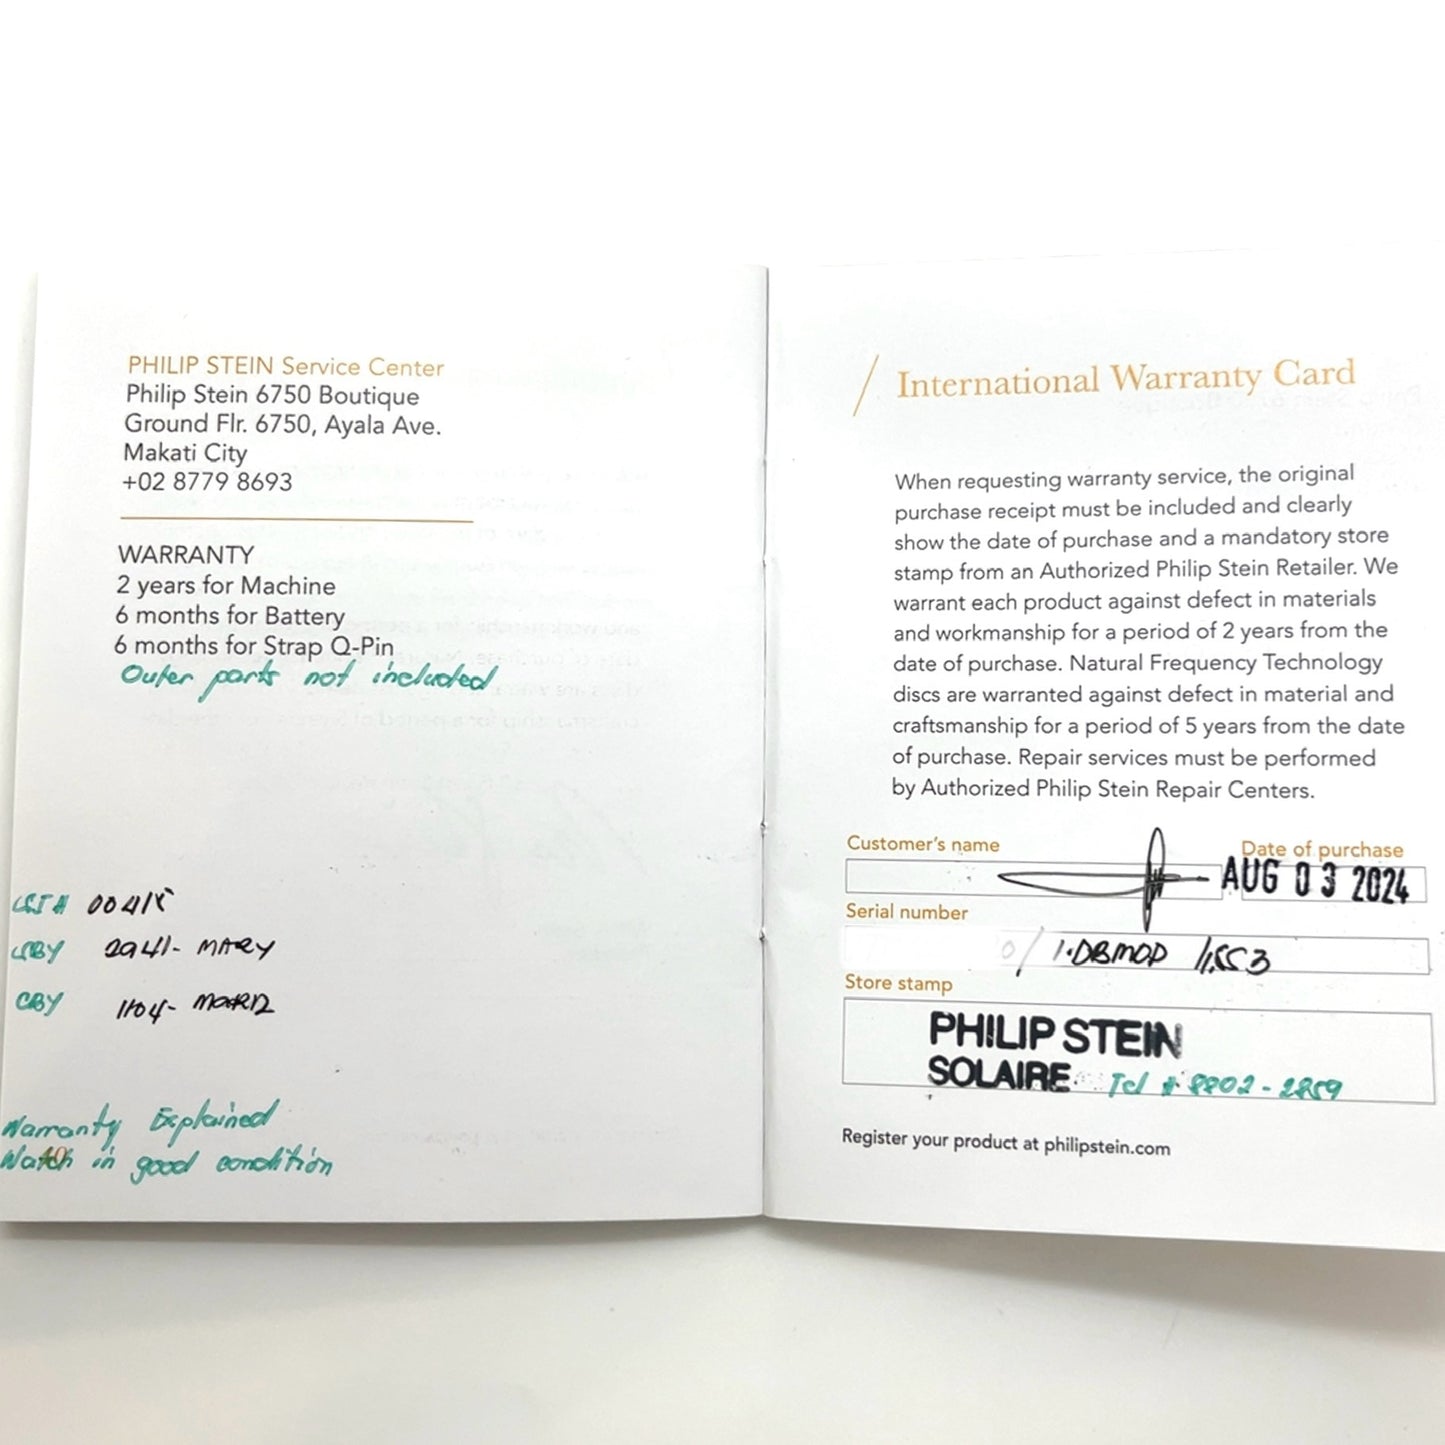 PHILIP STEIN Service Center
Philip Stein 6750 Boutique
Ground Flr. 6750, Ayala Ave.
Makati City
+02 8779 8693
WARRANTY
2 years for Machine
6 months for Battery
6 months for Strap Q-Pin
Outer parts not included
2941- MARY
CBY 1104-
Warranty Explained
Watch in good condition
International Warranty Card
When requesting warranty service, the original
purchase receipt must be included and clearly
show the date of purchase and a mandatory store
stamp from an Authorized Philip Stein Retailer. We
warrant each product against defect in materials
and workmanship for a period of 2 years from the
date of purchase. Natural Frequency Technology
discs are warranted against defect in material and
craftsmanship for a period of 5 years from the date
of purchase. Repair services must be performed
by Authorized Philip Stein Repair Centers.
Customer's name
Date of purchase
AUG 03 2024
Serial number
1-DBMOP
Store stamp
PHILIP STEIN
SOLAIRE Tel # 8802-2859
Register your product at philipstein.com